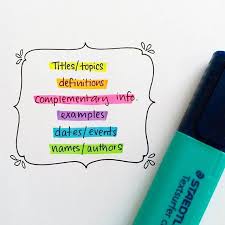 Titles/topics
definitions
complementary info.
examples
dates/events
names/authors
STAEDTLER
Textsurfer c